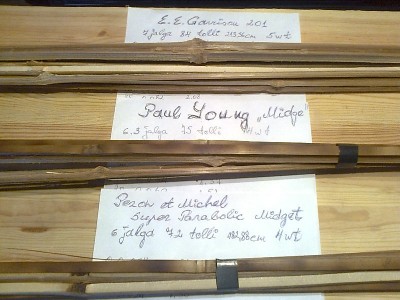 E. E. Garrison 201
7 jalga 84 tolli 213.36cm 5wt
Paul Young „Midge"
6.3 jalga 75 tolli 4wt
Pezon et Michel
Super Parabolic Midget
6 jalga 72 tolli 182.88cm 4wt